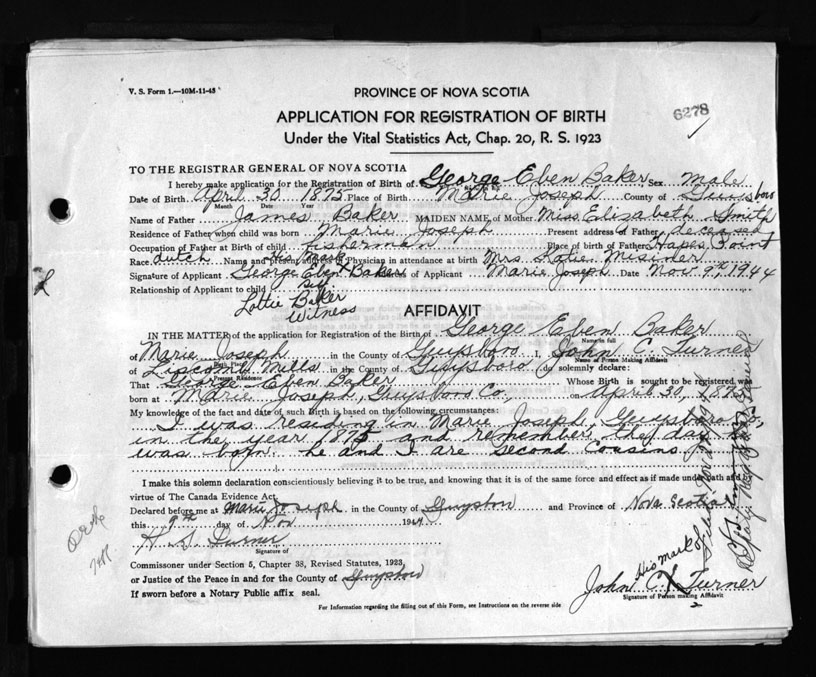 V. S. Form 1.—10M-11-43
PROVINCE OF NOVA SCOTIA
6278
APPLICATION FOR REGISTRATION OF BIRTH
Under the Vital Statistics Act, Chap. 20, R. S. 1923
TO THE REGISTRAR GENERAL OF NOVA SCOTIA
I hereby make application for the Registration of Birth of George Eben Baker Sex Male
Date of Birth April 30 1875 Place of Birth Marie Joseph County of Guysboro
Month Date Year
Name of Father James Baker MAIDEN NAME of Mother Miss Elizabeth Smith
Residence of Father when child was born Marie Joseph Present address of Father deceased
Occupation of Father at Birth of child fisherman Place of birth of Father Hapes Point
Race dutch Name and present address of Physician in attendance at birth Mrs. Katie Misiner
his mark
Signature of Applicant George Eben X Baker of Applicant Marie Joseph Date Nov 9th, 1944
Relationship of Applicant to child
Lottie Baker
Witness
AFFIDAVIT
IN THE MATTER of the application for Registration of the Birth of George Eben Baker
Name in full
of Marie Joseph in the County of Guysboro I, John C. Turner
Birth Place Name of Person Making Affidavit
of Liscomb Mills in the County of Guysboro do solemnly declare:
Present Residence
That George Eben Baker Whose Birth is sought to be registered was
born at Marie Joseph, Guysboro Co., on April 30, 1875
My knowledge of the fact and date of such Birth is based on the following circumstances:
I was residing in Marie Joseph, Guysboro Co,
in the year 1875 and remember the day he
was born. he and I are second Cousins.
I make this solemn declaration conscientiously believing it to be true, and knowing that it is of the same force and effect as if made under oath and by
virtue of The Canada Evidence Act.
Declared before me at Marie Joseph in the County of Guysboro and Province of Nova Scotia
this 9th day of Nov 1944
H. S. Turner
Signature of
Commissioner under Section 5, Chapter 38, Revised Statutes, 1923,
or Justice of the Peace in and for the County of Guysboro
If sworn before a Notary Public affix seal.
His mark
John C. X Turner
Signature of Person making Affidavit
For Information regarding the filling out of this Form, see Instructions on the reverse side